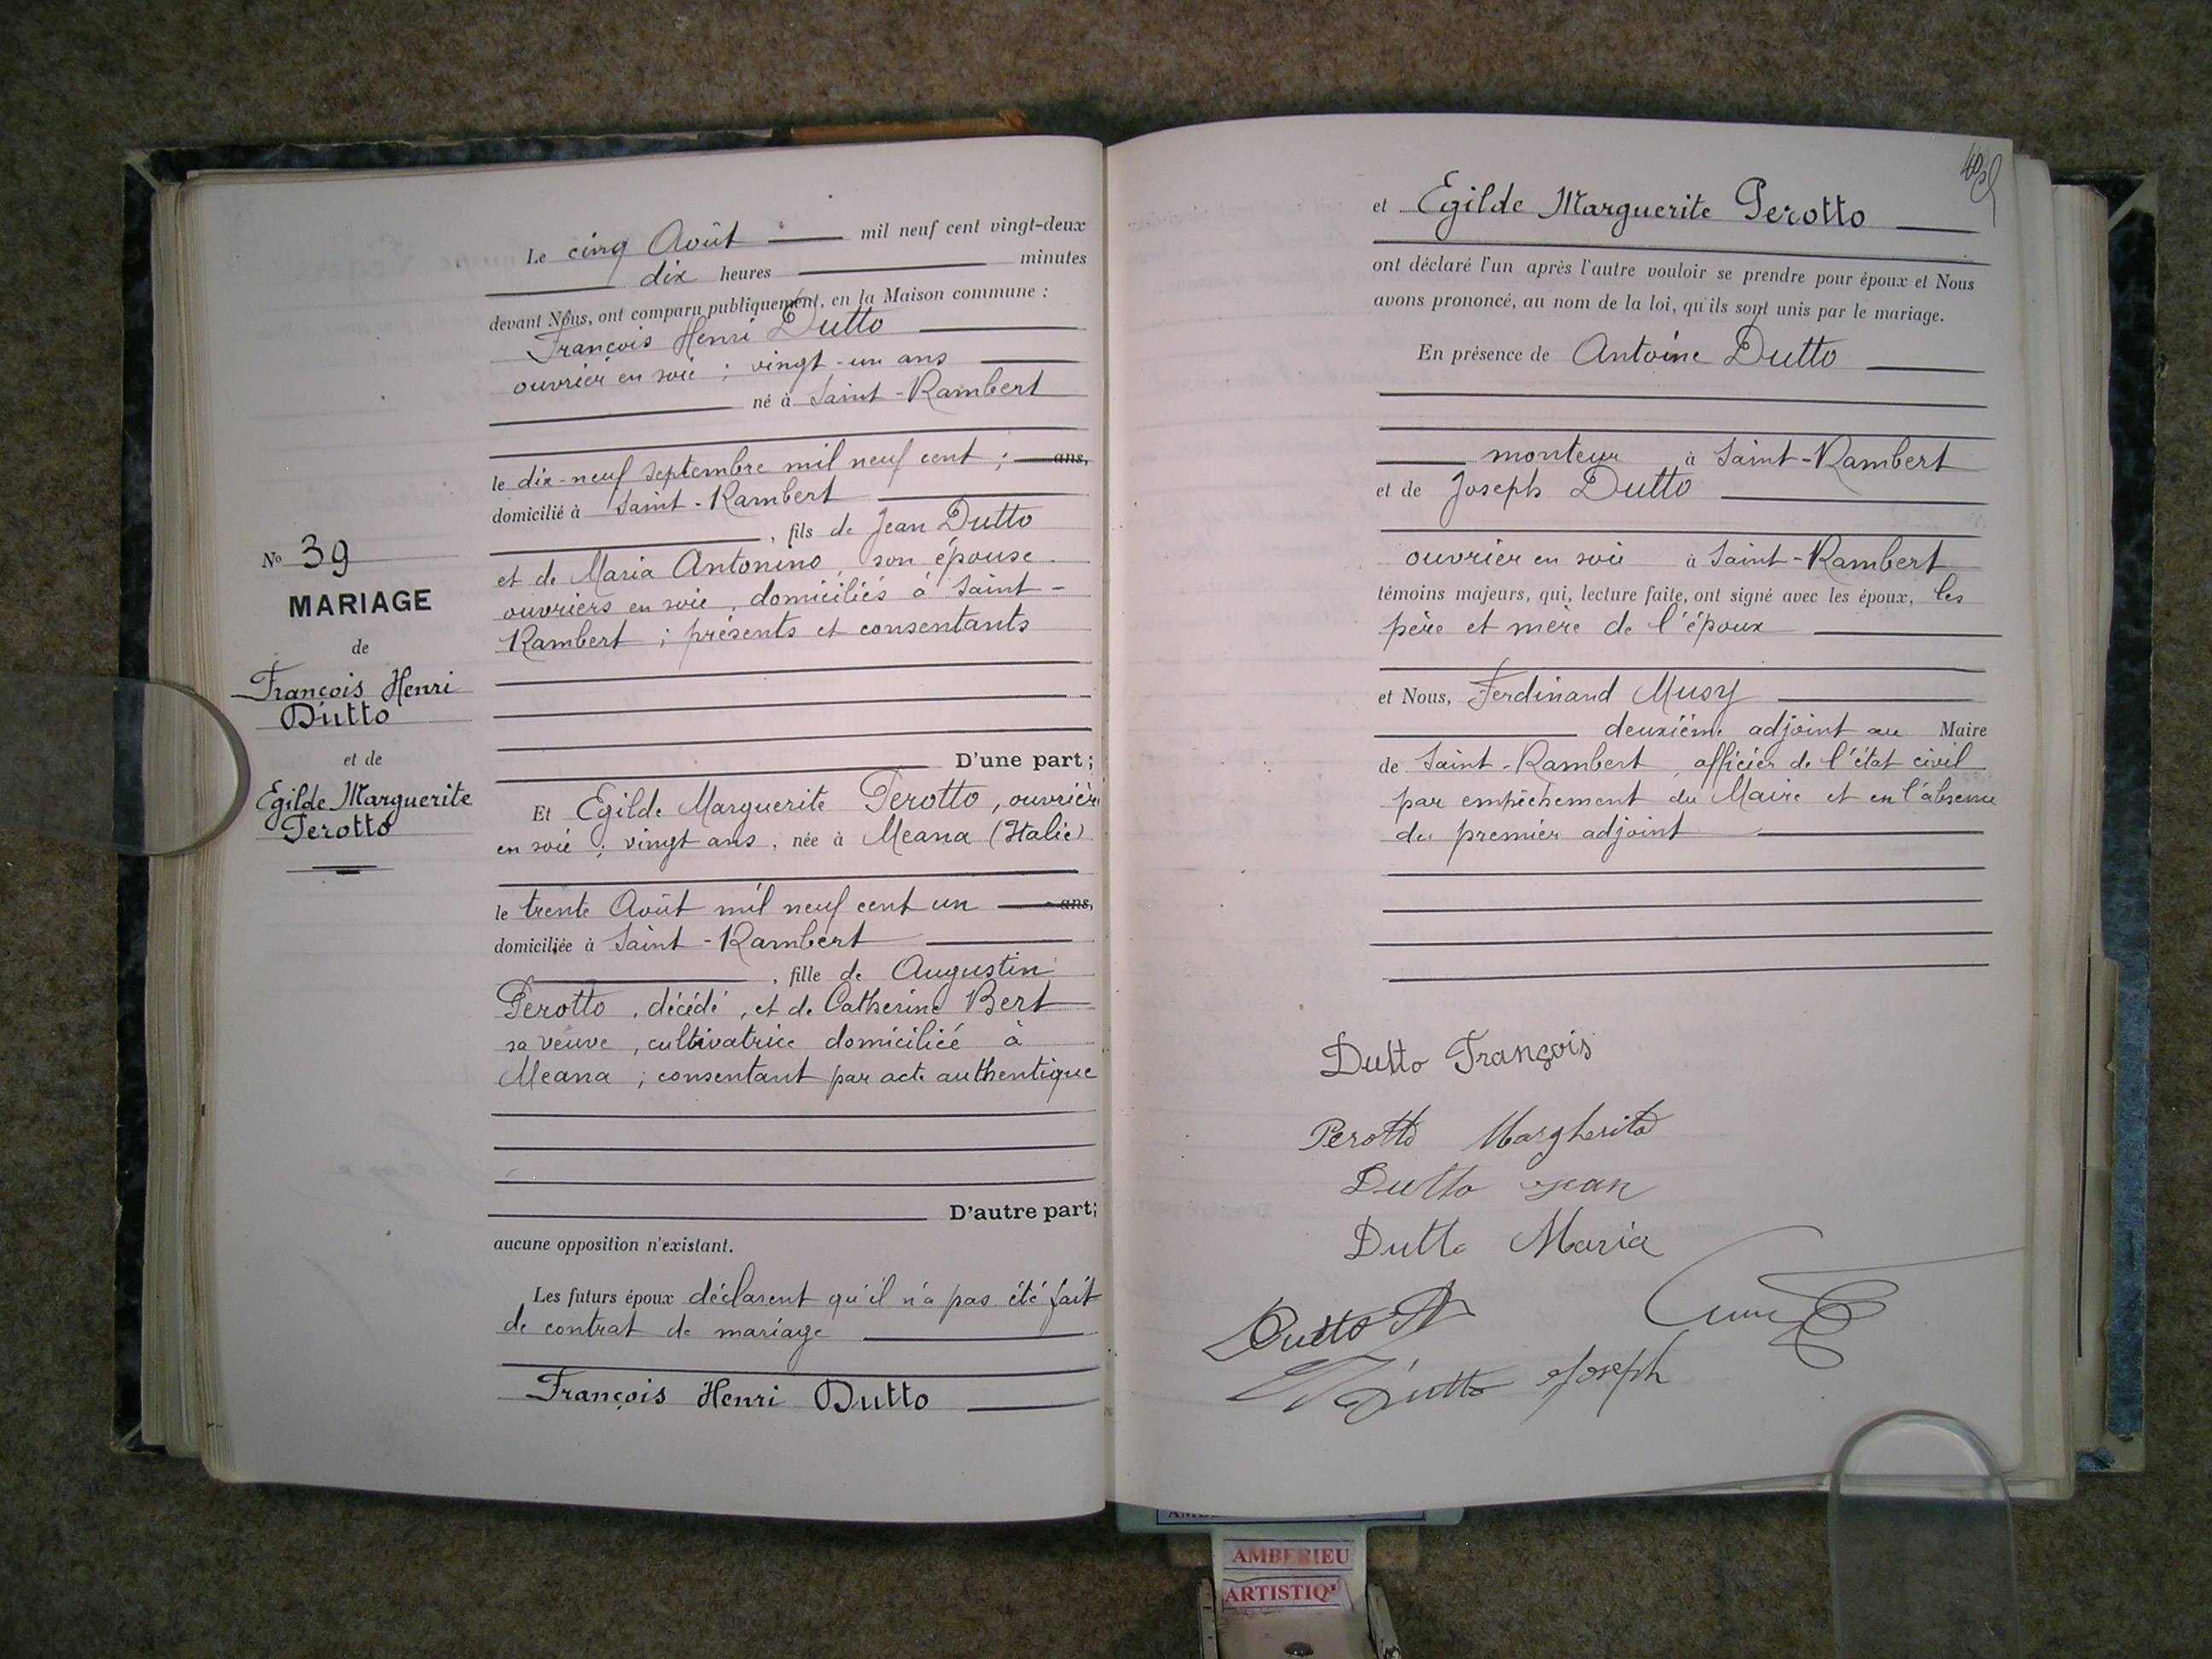 N° 39
MARIAGE
de
François Henri
Dutto
et de
Egilde Marguerite
Perotto
Le cinq Août mil neuf cent vingt-deux
dix heures minutes
devant Nous, ont comparu publiquement, en la Maison commune :
François Henri Dutto
ouvrier en soie ; vingt-un ans
né à Saint-Rambert
le dix-neuf septembre mil neuf cent ; ans,
domicilié à Saint-Rambert
, fils de Jean Dutto
et de Maria Antonino, son épouse
ouvriers en soie, domiciliés à Saint-
Rambert ; présents et consentants
D'une part ;
Et Egilde Marguerite Perotto, ouvrière
en soie ; vingt ans, née à Meana (Italie)
le trente Août mil neuf cent un ans,
domiciliée à Saint-Rambert
, fille de Augustin
Perotto, décédé, et de Catherine Bert
sa veuve, cultivatrice domiciliée à
Meana ; consentant par acte authentique
D'autre part ;
aucune opposition n'existant.
Les futurs époux déclarent qu'il n'a pas été fait
de contrat de mariage
François Henri Dutto
et Egilde Marguerite Perotto
ont déclaré l'un après l'autre vouloir se prendre pour époux et Nous
avons prononcé, au nom de la loi, qu'ils sont unis par le mariage.
En présence de Antoine Dutto
monteur à Saint-Rambert
et de Joseph Dutto
ouvrier en soie à Saint-Rambert
témoins majeurs, qui, lecture faite, ont signé avec les époux, les
père et mère de l'époux
et Nous, Ferdinand Musy
deuxième adjoint au Maire
de Saint-Rambert, officier de l'état civil
par empêchement du Maire et en l'absence
du premier adjoint
Dutto François
Perotto Margherita
Dutto Jean
Dutto Maria
Dutto A
Dutto Joseph
AMBERIEU
ARTISTIQ